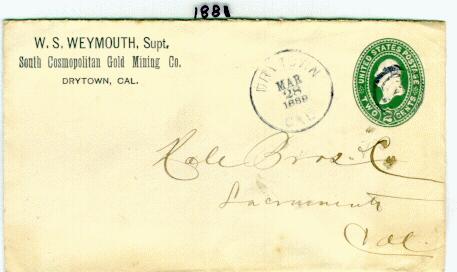 1881
W. S. WEYMOUTH, Supt,
South Cosmopolitan Gold Mining Co.
DRYTOWN, CAL.
DRYTOWN
MAR
28
1889
CAL
UNITED STATES POSTAGE
TWO CENTS
Hale Bros. & Co
Sacramento
Cal.